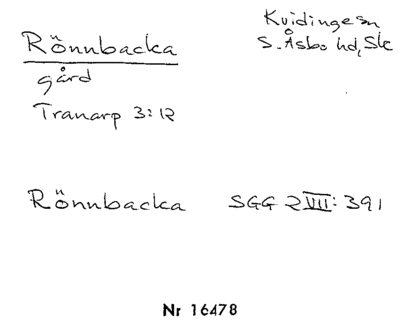 Rönnbacka
gård
Tranarp 3:12
Kvidinge sn
S. Åsbo hd, Sk
Rönnbacka SGG 2 VIII: 391
Nr 16478